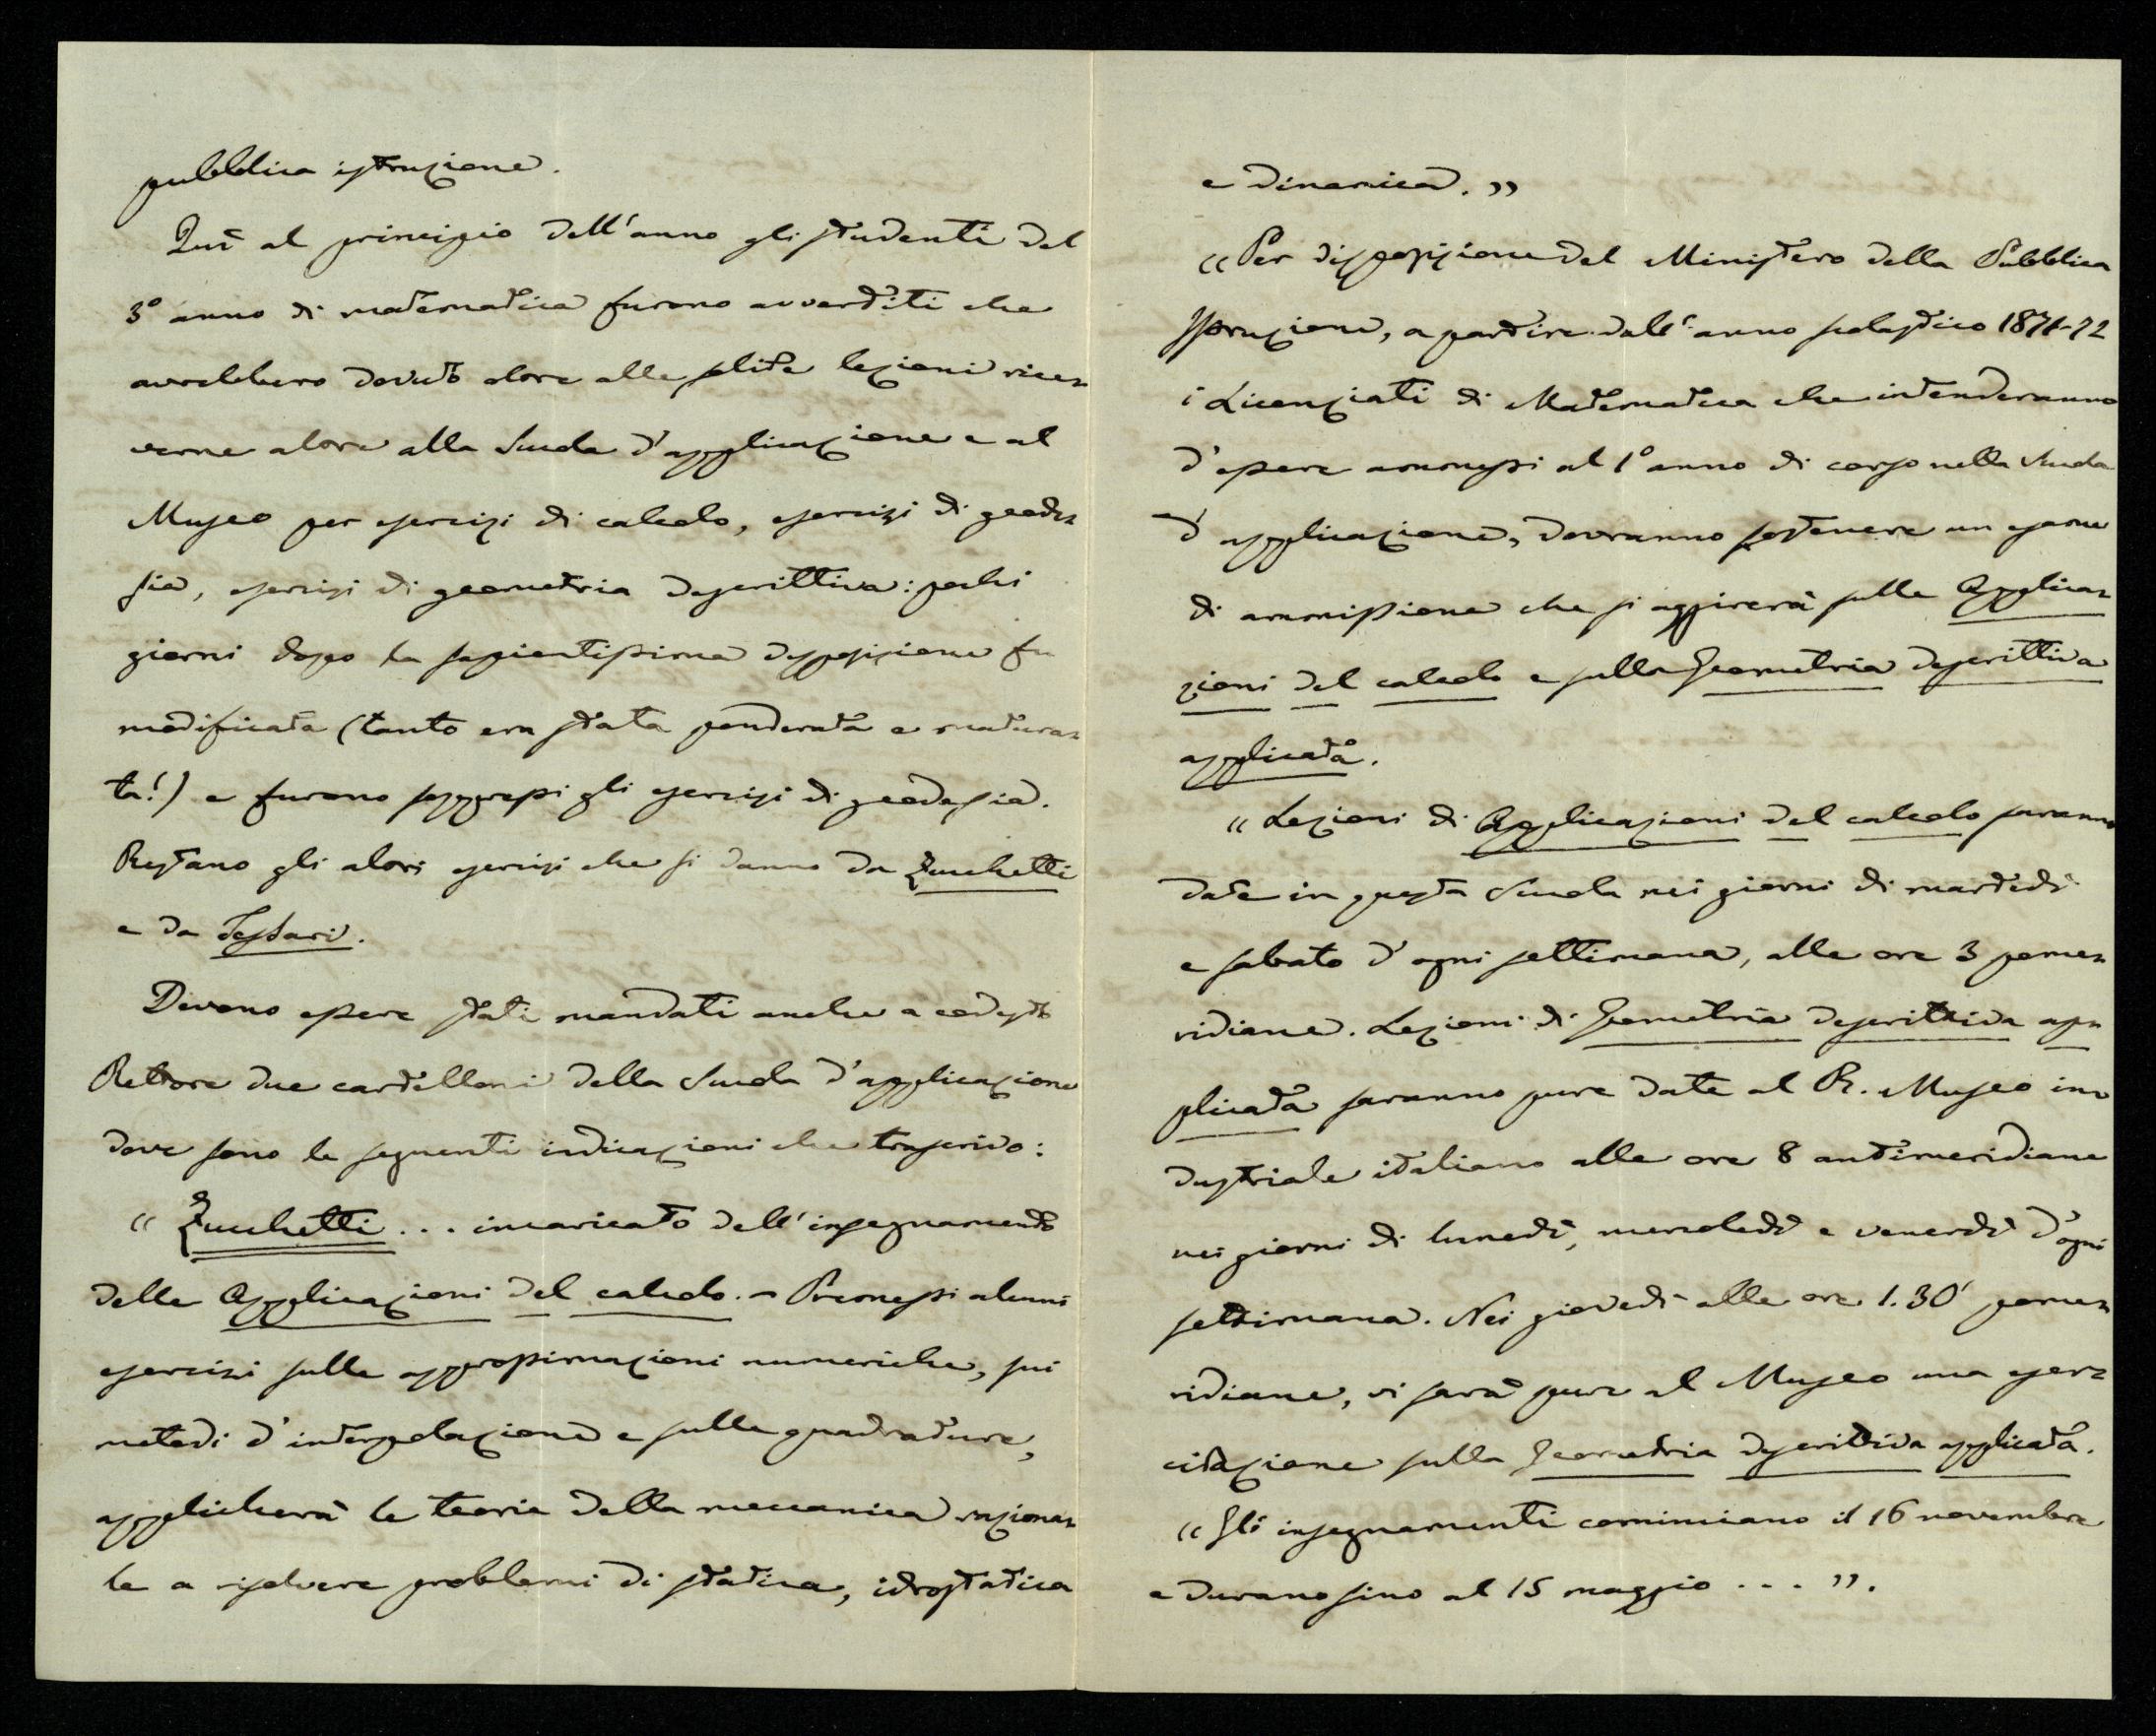 pubblica istruzione.
Quì al principio dell'anno gli studenti del
3° anno di matematica furono avvertiti che
avrebbero dovuto oltre alle solite lezioni rice=
verne altre alla Scuola d'applicazione e al
Museo per esercizi di calcolo, esercizi di geode=
sia, esercizi di geometria descrittiva: pochi
giorni dopo la sapientissima disposizione fu
modificata (tanto era stata ponderata e matura=
ta!) e furono soppressi gli esercizi di geodesia.
Restano gli altri esercizi che si danno da Zucchetti
e da Tessari.
Devono essere stati mandati anche a codesto
Rettore due cartelloni della Scuola d'applicazione
dove sono le seguenti indicazioni che trascrivo:
"Zucchetti... incaricato dell'insegnamento
delle Applicazioni del calcolo. - Premessi alcuni
esercizi sulle approssimazioni numeriche, sui
metodi d'interpolazione e sulle quadrature,
applicherà le teorie della meccanica raziona=
le a risolvere problemi di statica, idrostatica
e dinamica."
"Per disposizione del Ministero della Pubblica
Istruzione, a partire dall'anno scolastico 1871-72
i Licenziati di Matematica che intenderanno
d'essere ammessi al 1° anno di corso nella Scuola
d'applicazione, dovranno sostenere un esame
di ammissione che si aggirerà sulle Applica=
zioni del calcolo e sulla Geometria descrittiva
applicata.
"Lezioni di Applicazioni del calcolo saranno
date in questa Scuola nei giorni di martedì
e sabato d'ogni settimana, alle ore 3 pome=
ridiane. Lezioni di Geometria descrittiva ap=
plicata saranno pure date al R. Museo in=
dustriale italiano alle ore 8 antimeridiane
nei giorni di lunedì, mercoledì e venerdì d'ogni
settimana. Nei giovedì alle ore 1.30' pome=
ridiane, vi sarà pure al Museo una eser=
citazione sulla Geometria descrittiva applicata.
"Gli insegnamenti cominciano il 16 novembre
e durano sino al 15 maggio . . . ".